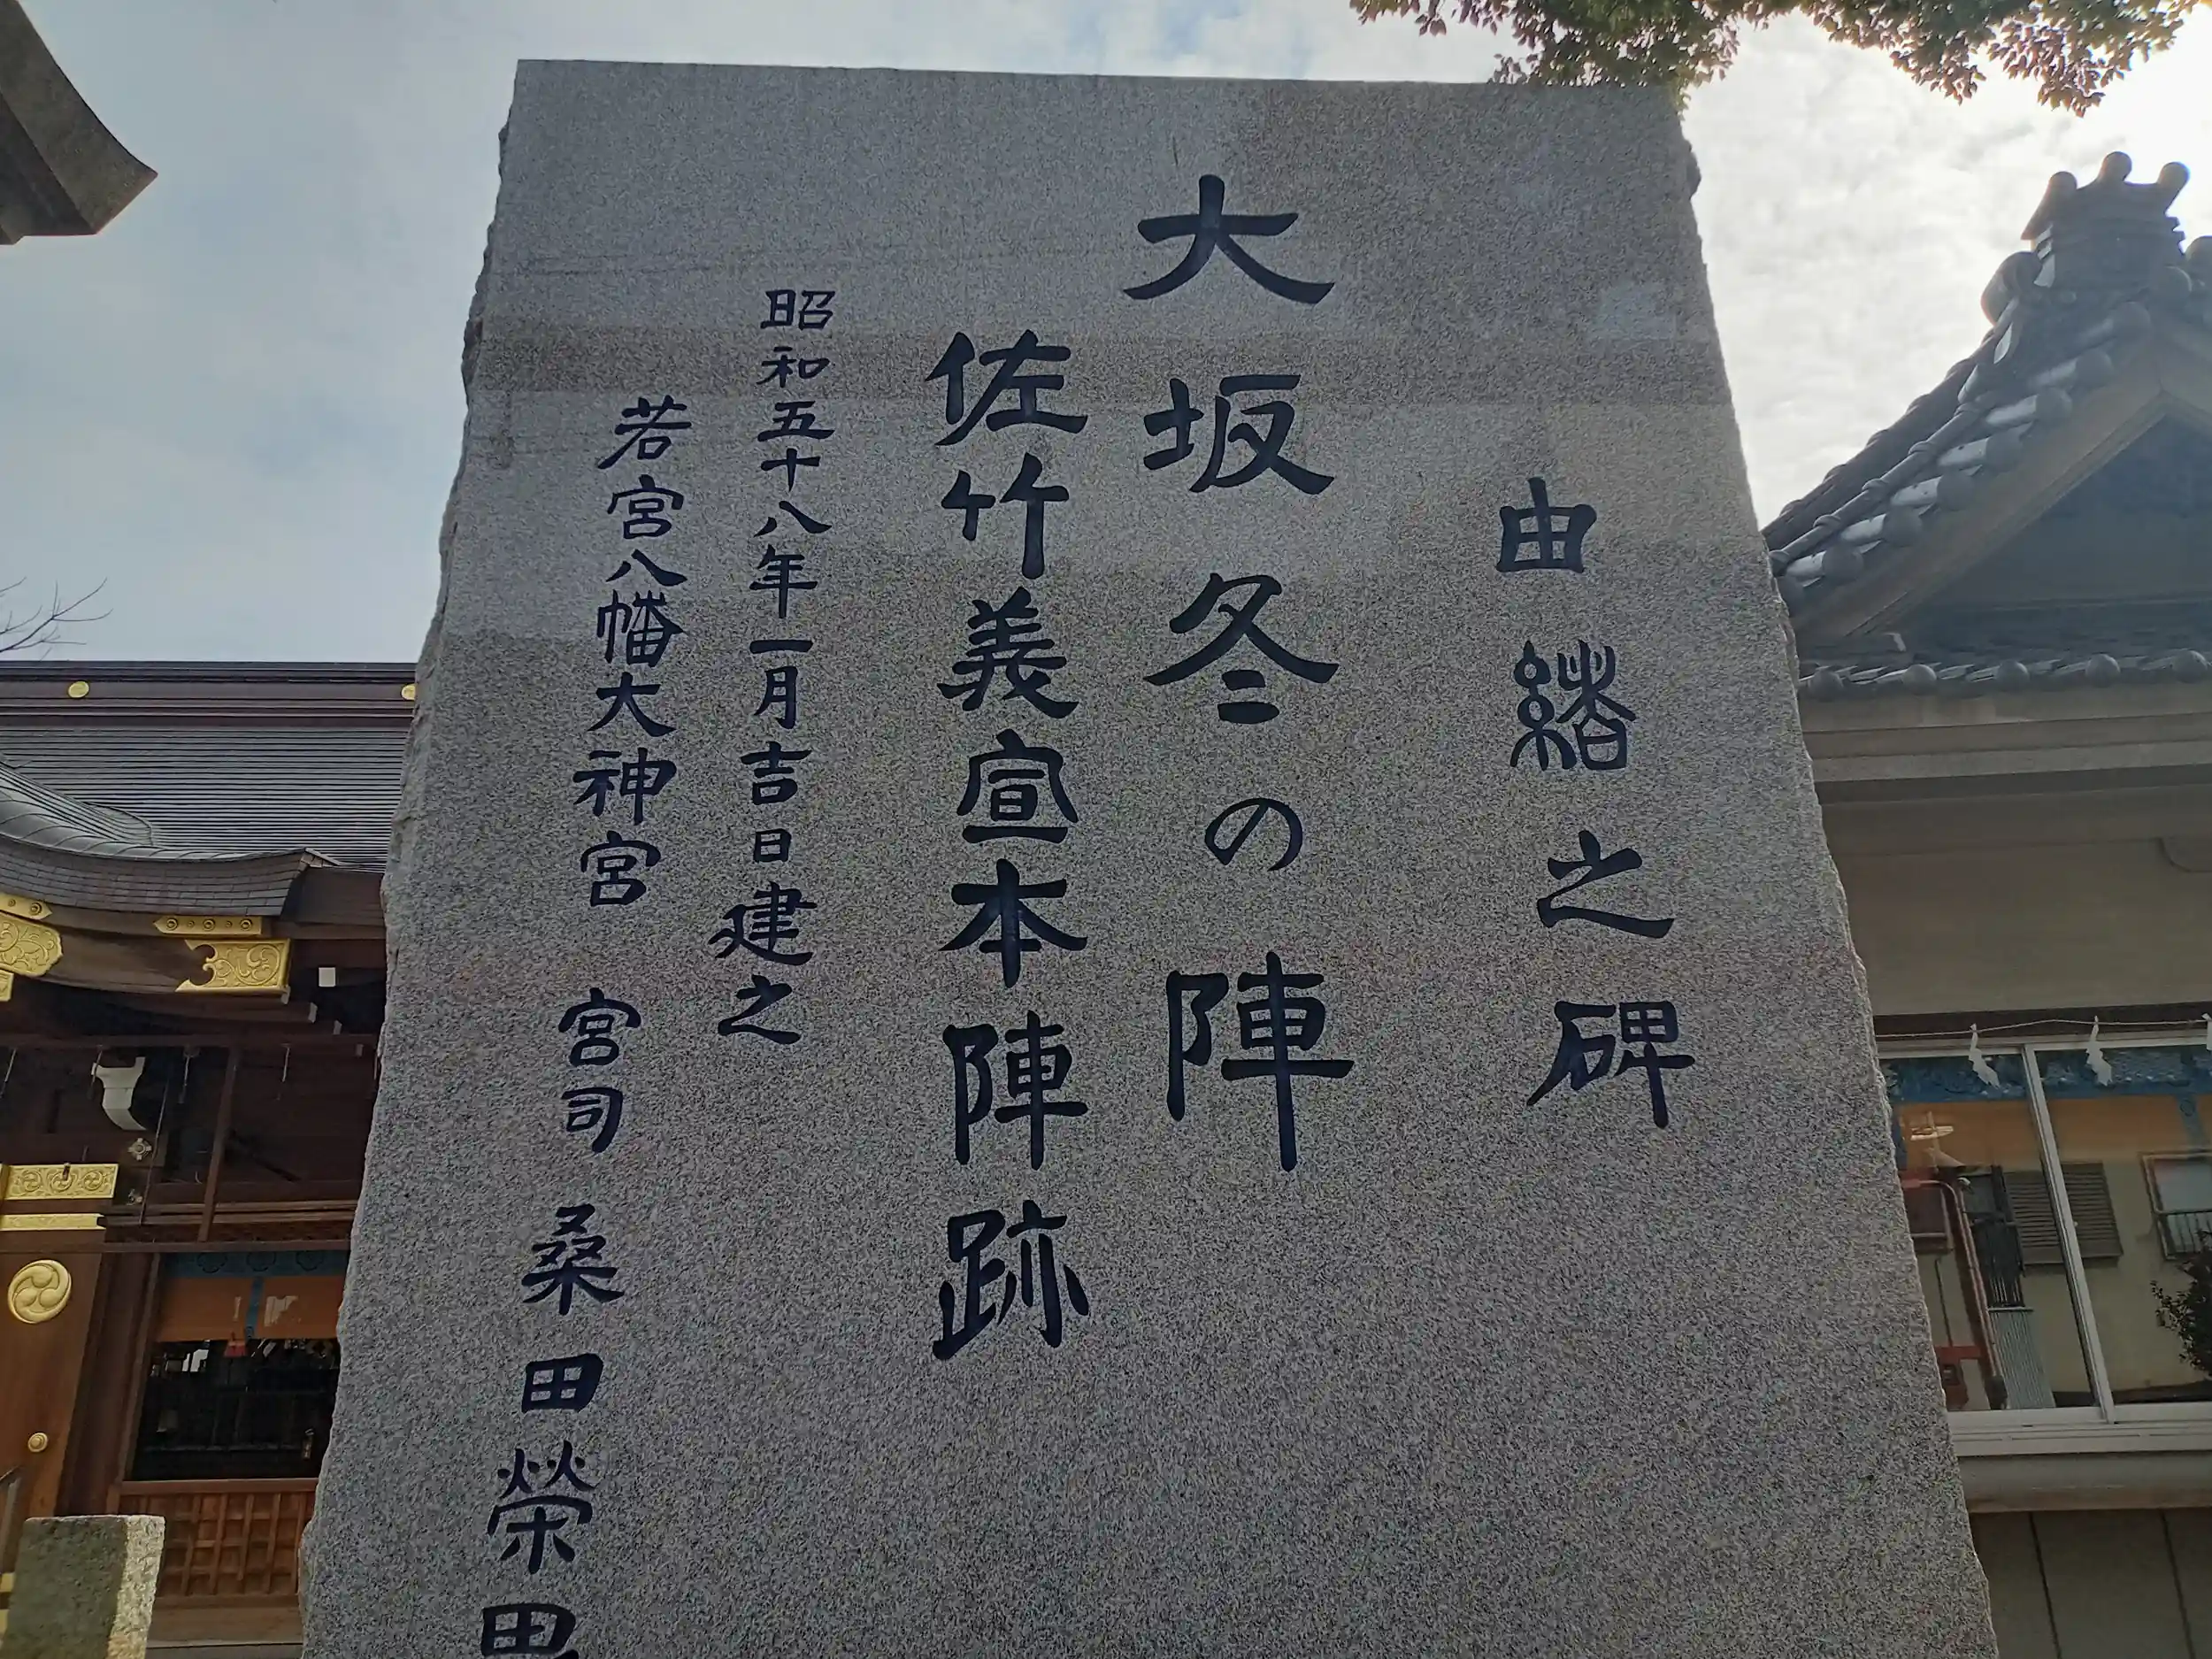 由緒之碑
大坂冬の陣
佐竹義宣本陣跡
昭和五十八年一月吉日建之
若宮八幡大神宮 宮司 桑田榮